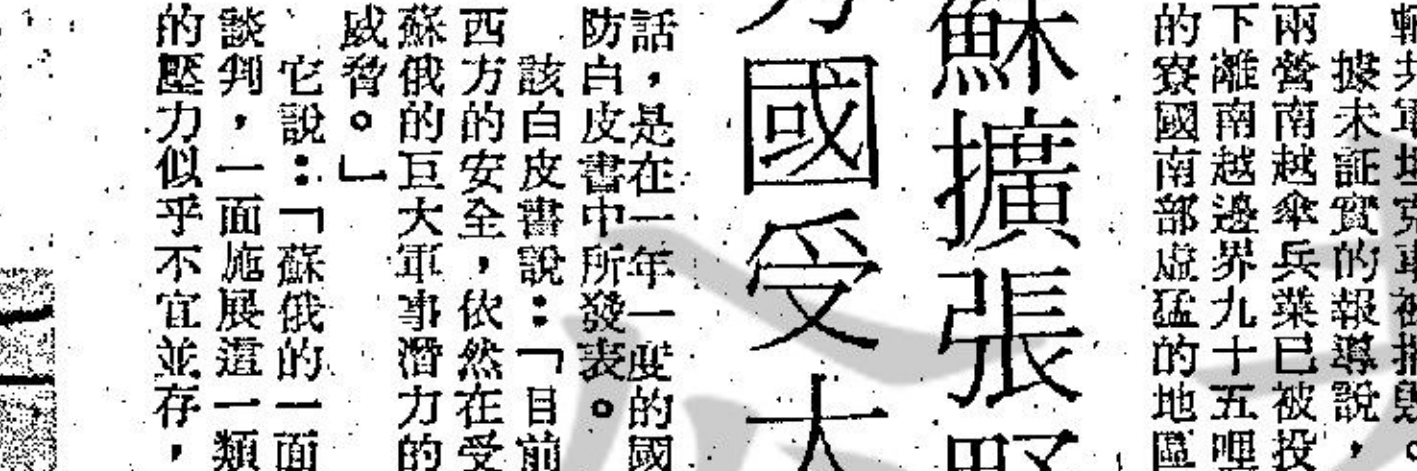 據未証實的報導說，
兩營南越傘兵業已被投
下離南越邊界九十五哩
的寮國南部虛猛的地區
蘇擴張野
方國受大
話，是在一年一度的國
防白皮書中所發表。
該白皮書說：「目前
西方的安全，依然在受
蘇俄的巨大軍事潛力的
威脅。」
它說：「蘇俄的一面
談判，一面施展這一類
的壓力似乎不宜並存，